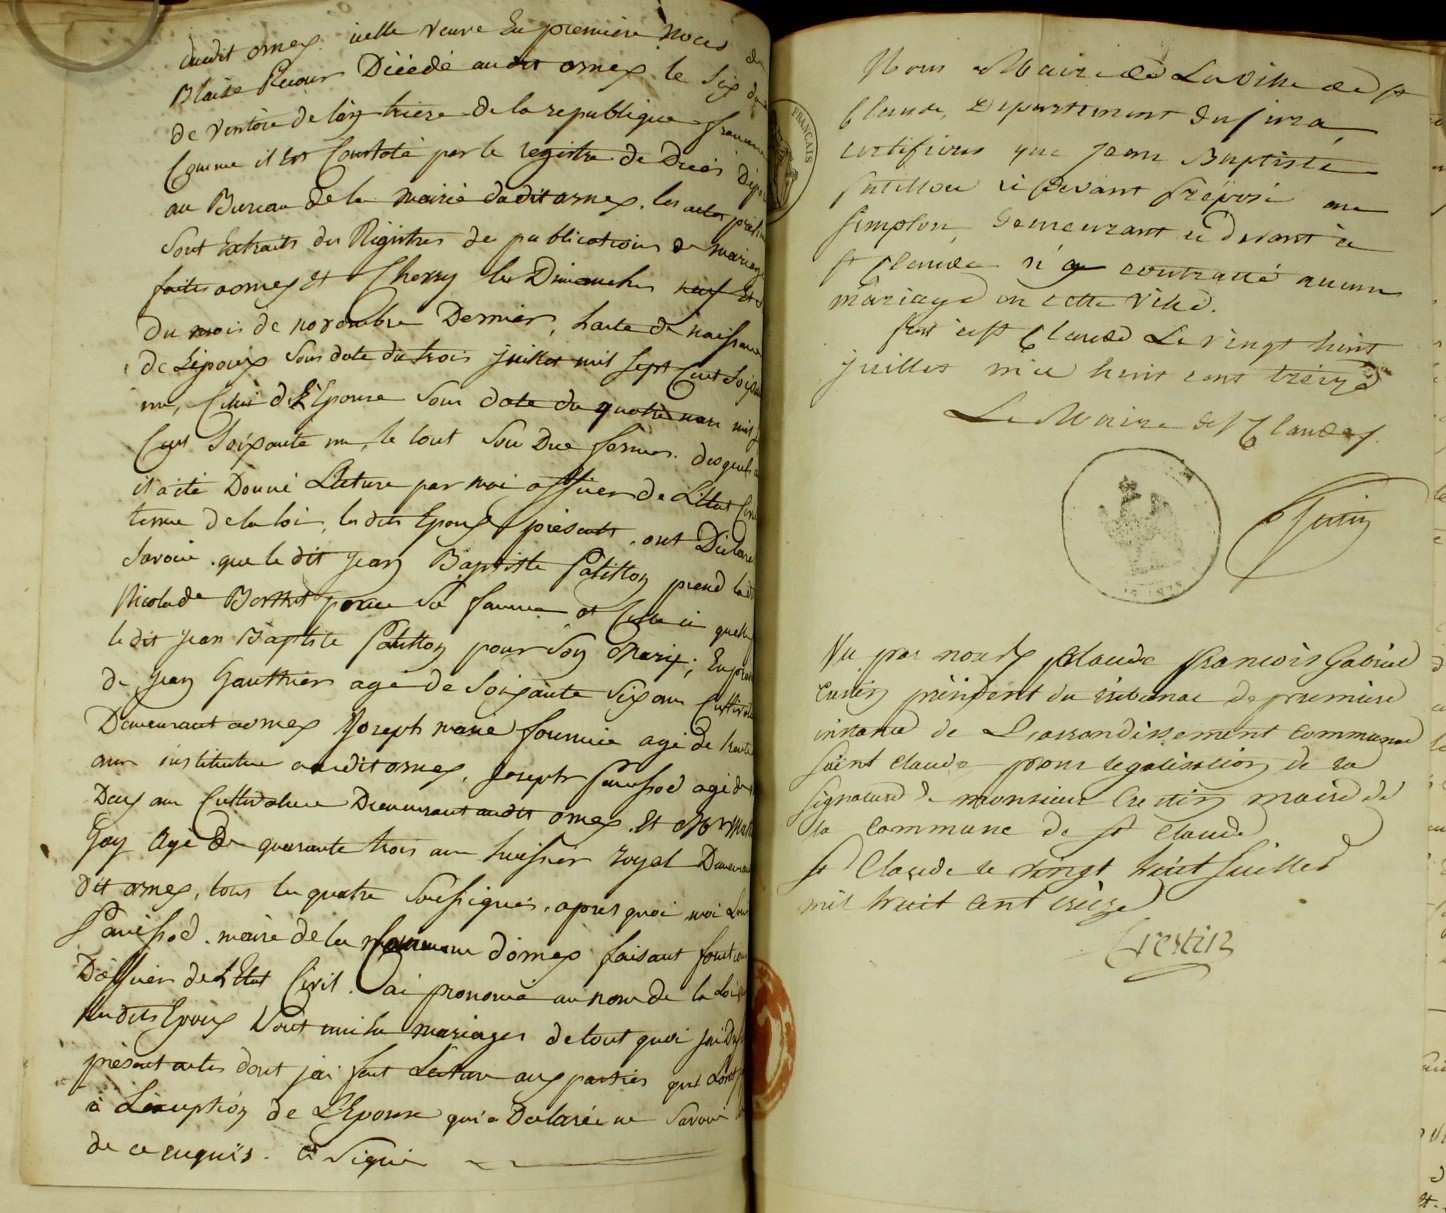 audit ornex. icelle veuve En première Noces de
Blaise Decour Décédé audit ornex le six du
de ventose de l'an treize de la republique francaise
Comme il Est Constaté par le registre de Décés
au Bureau de la mairie dudit ornex. les actes
Sont Extraits des Registres de publications de mariage
faites a ornex et Chevry les Dimanches neuf Et
Du mois de novembre Dernier, l'acte de naissance
de L'époux Sous date du trois juillet mil sept Cent Soixante
un, Celui de L'Epouse Sous date du quatre mars mil
Cent Soixante un, le tout Sous Due forme. desquels
il a été Donné Lecture par moi officier de L'Etat Civil
terme de la loi, les dits Epoux présents, ont Déclaré
Savoir. que le dit Jean Baptiste Patillon prend la dite
Nicolade Berthet pour Sa femme et Celle ci quelle
le dit Jean Baptiste Patillon pour Son Mari; En présence
de Jean Gauthier agé de Soixante Six ans Cultivateur
Demeurant a ornex Joseph marie fournier agé de trente
ans instituteur audit ornex, Joseph Panissod agé de
Deux ans Cultivateur Demeurant audit ornex. Et
Gay Agé de quarante trois ans huissier royal Demeurant
dit ornex, tous les quatre Soussignés. apres quoi moi
Panissod. maire de la Commune d'ornex faisant fonctions
D'officier de L'Etat Civil. ai prononcé au nom de la Loi
les dits Epoux Sont unis En mariages de tout quoi j'ai
présent actes dont j'ai fait Lecture aux parties qui L'ont
à L'exception de L'Epouse qui a Déclaré ne Savoir
de ce enquis. Et Signé
Nous Maire de La ville de st
Claude, Département du jura,
certifions que Jean Baptiste
patillon ci devant préposé au
simplon, demeurant ci devant à
st Claude n'a contracté aucun
mariage en cette ville.
fait à st Claude Le vingt huit
juillet mil huit cent treize
Le Maire de st Claude
FRANÇAIS
Vu par nous Claude françois Gabriel
Crestin président du tribunal de première
instance de L'arrondissement communal
saint claude pour legalisation de la
signature de monsieur Crestin maire de
la commune de st claude
st Claude le vingt huit juillet
mil huit cent treize
Crestin